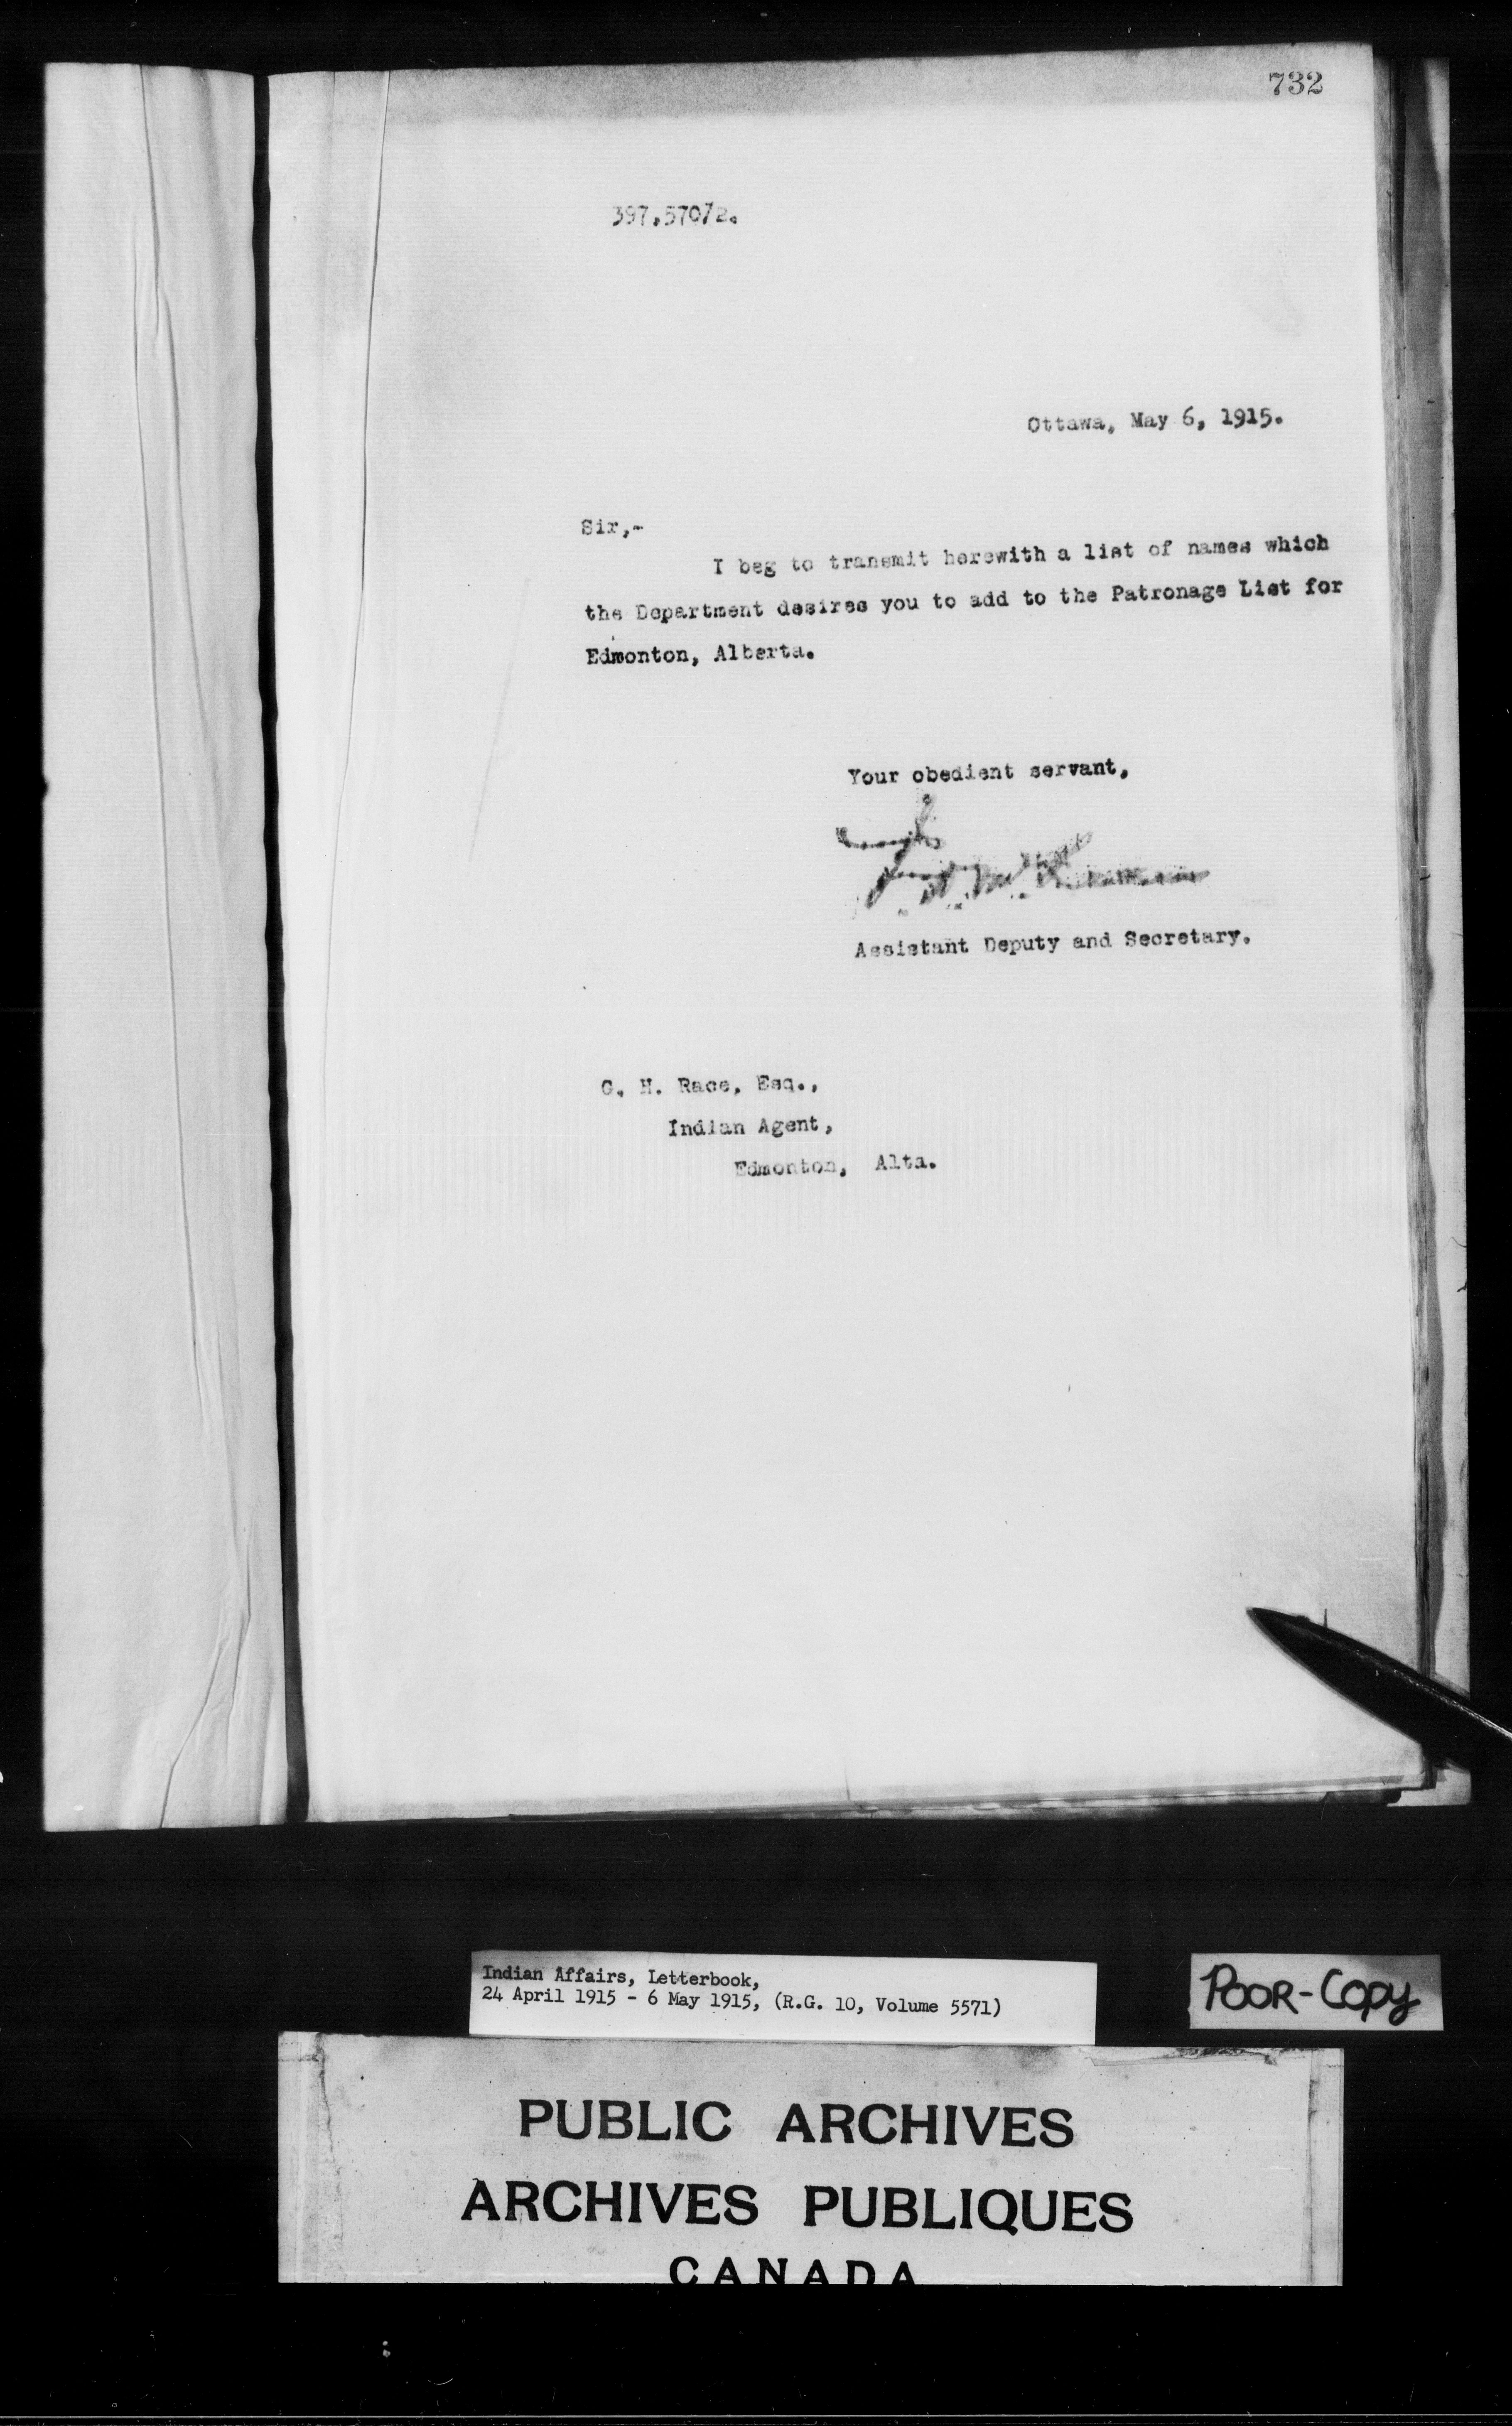 732
397,570/2.
Ottawa, May 6, 1915.
Sir,-
I beg to transmit herewith a list of names which
the Department desires you to add to the Patronage List for
Edmonton, Alberta.
Your obedient servant,
Assistant Deputy and Secretary.
G. H. Race, Esq.,
Indian Agent,
Edmonton, Alta.
Indian Affairs, Letterbook,
24 April 1915 - 6 May 1915, (R.G. 10, Volume 5571)
POOR-COPY
PUBLIC ARCHIVES
ARCHIVES PUBLIQUES
CANADA